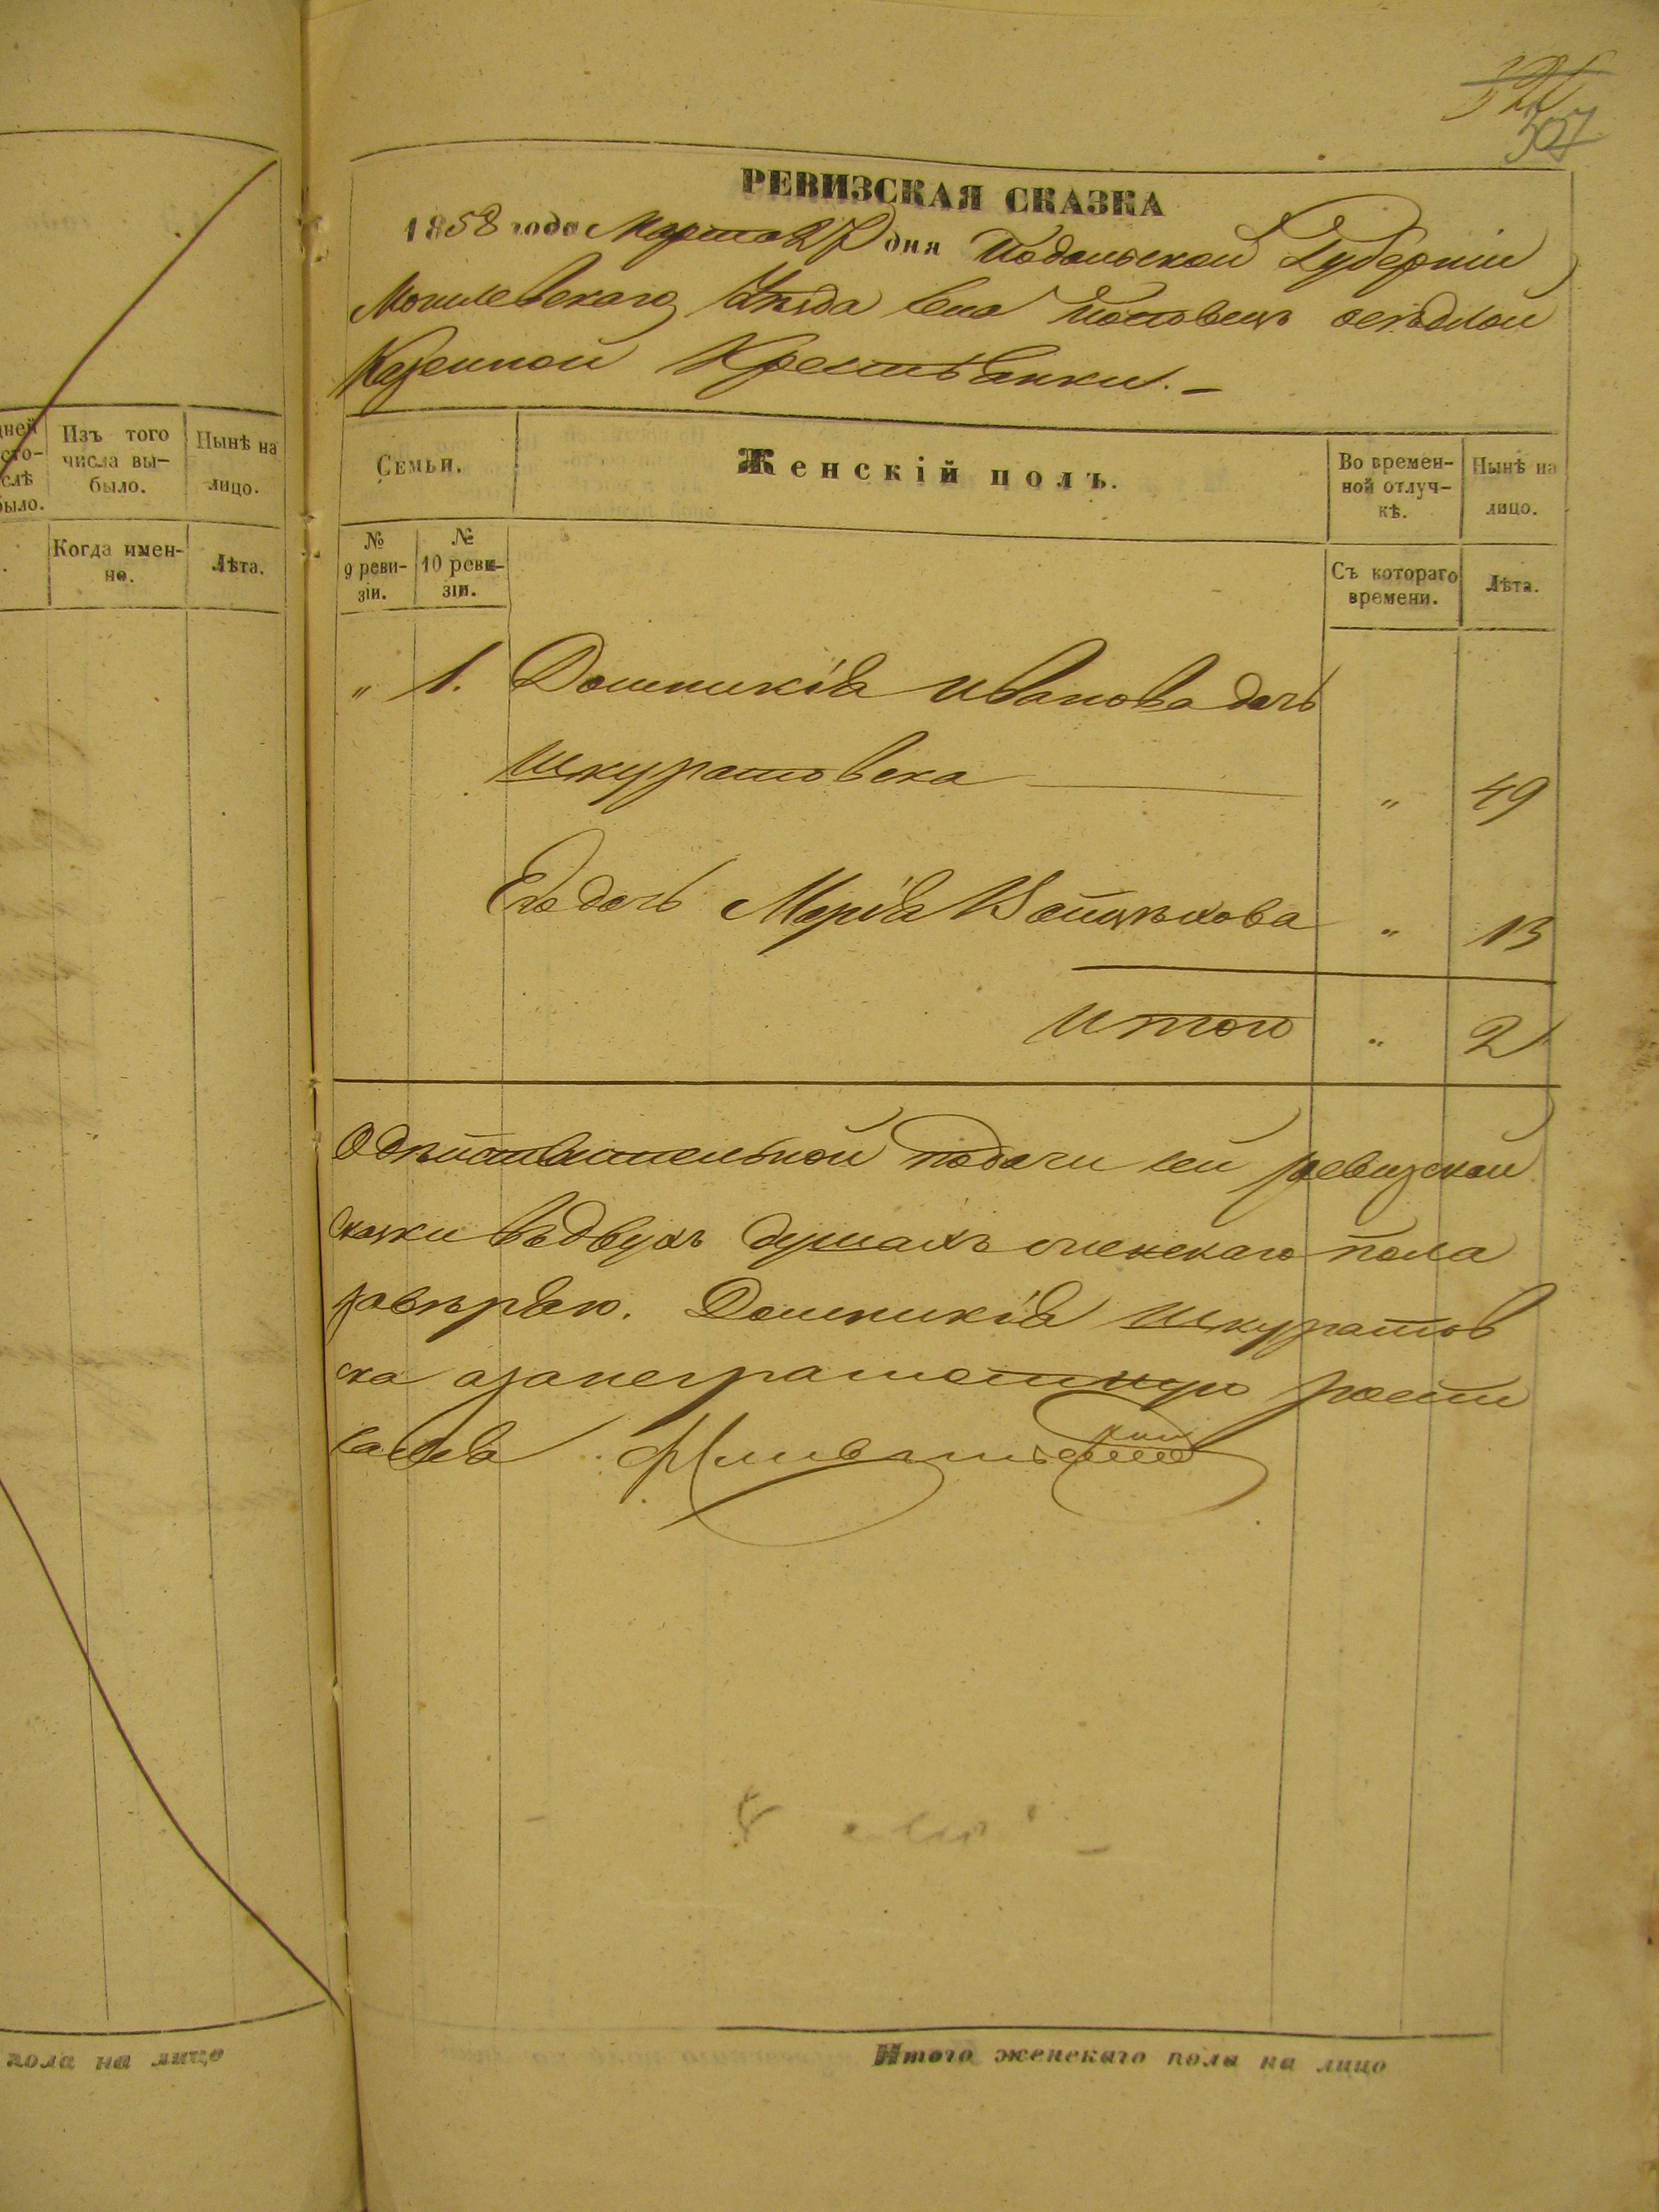 507
РЕВИЗСКАЯ СКАЗКА
1858 года Марта 27 дня Подольской Губерніи
Могилевскаго Уѣзда села Поповецъ осѣдлой
Казенной Крестьянки. –
Семьи.
Женскій полъ.
Во времен-
ной отлуч-
кѣ.
Нынѣ на
лицо.
№
9 реви-
зіи.
№
10 реви-
зіи.
Съ котораго
времени.
Лѣта.
" 1. Доминикія Иванова дочь
Шкуратовска " 49
Ея дочь Марія Войцѣхова " 13
Итого " 2
О дѣйствительной подачи сей ревизской
скаски въ двухъ душахъ женскаго пола
завѣряю. Доминикія Шкуратов
ска а за неграмотную росты
салься
Итого женскаго пола на лицо
дней
сто-
слѣ
было.
Изъ того
числа вы-
было.
Нынѣ на
лицо.
Когда имен-
но.
Лѣта.
пола на лицо